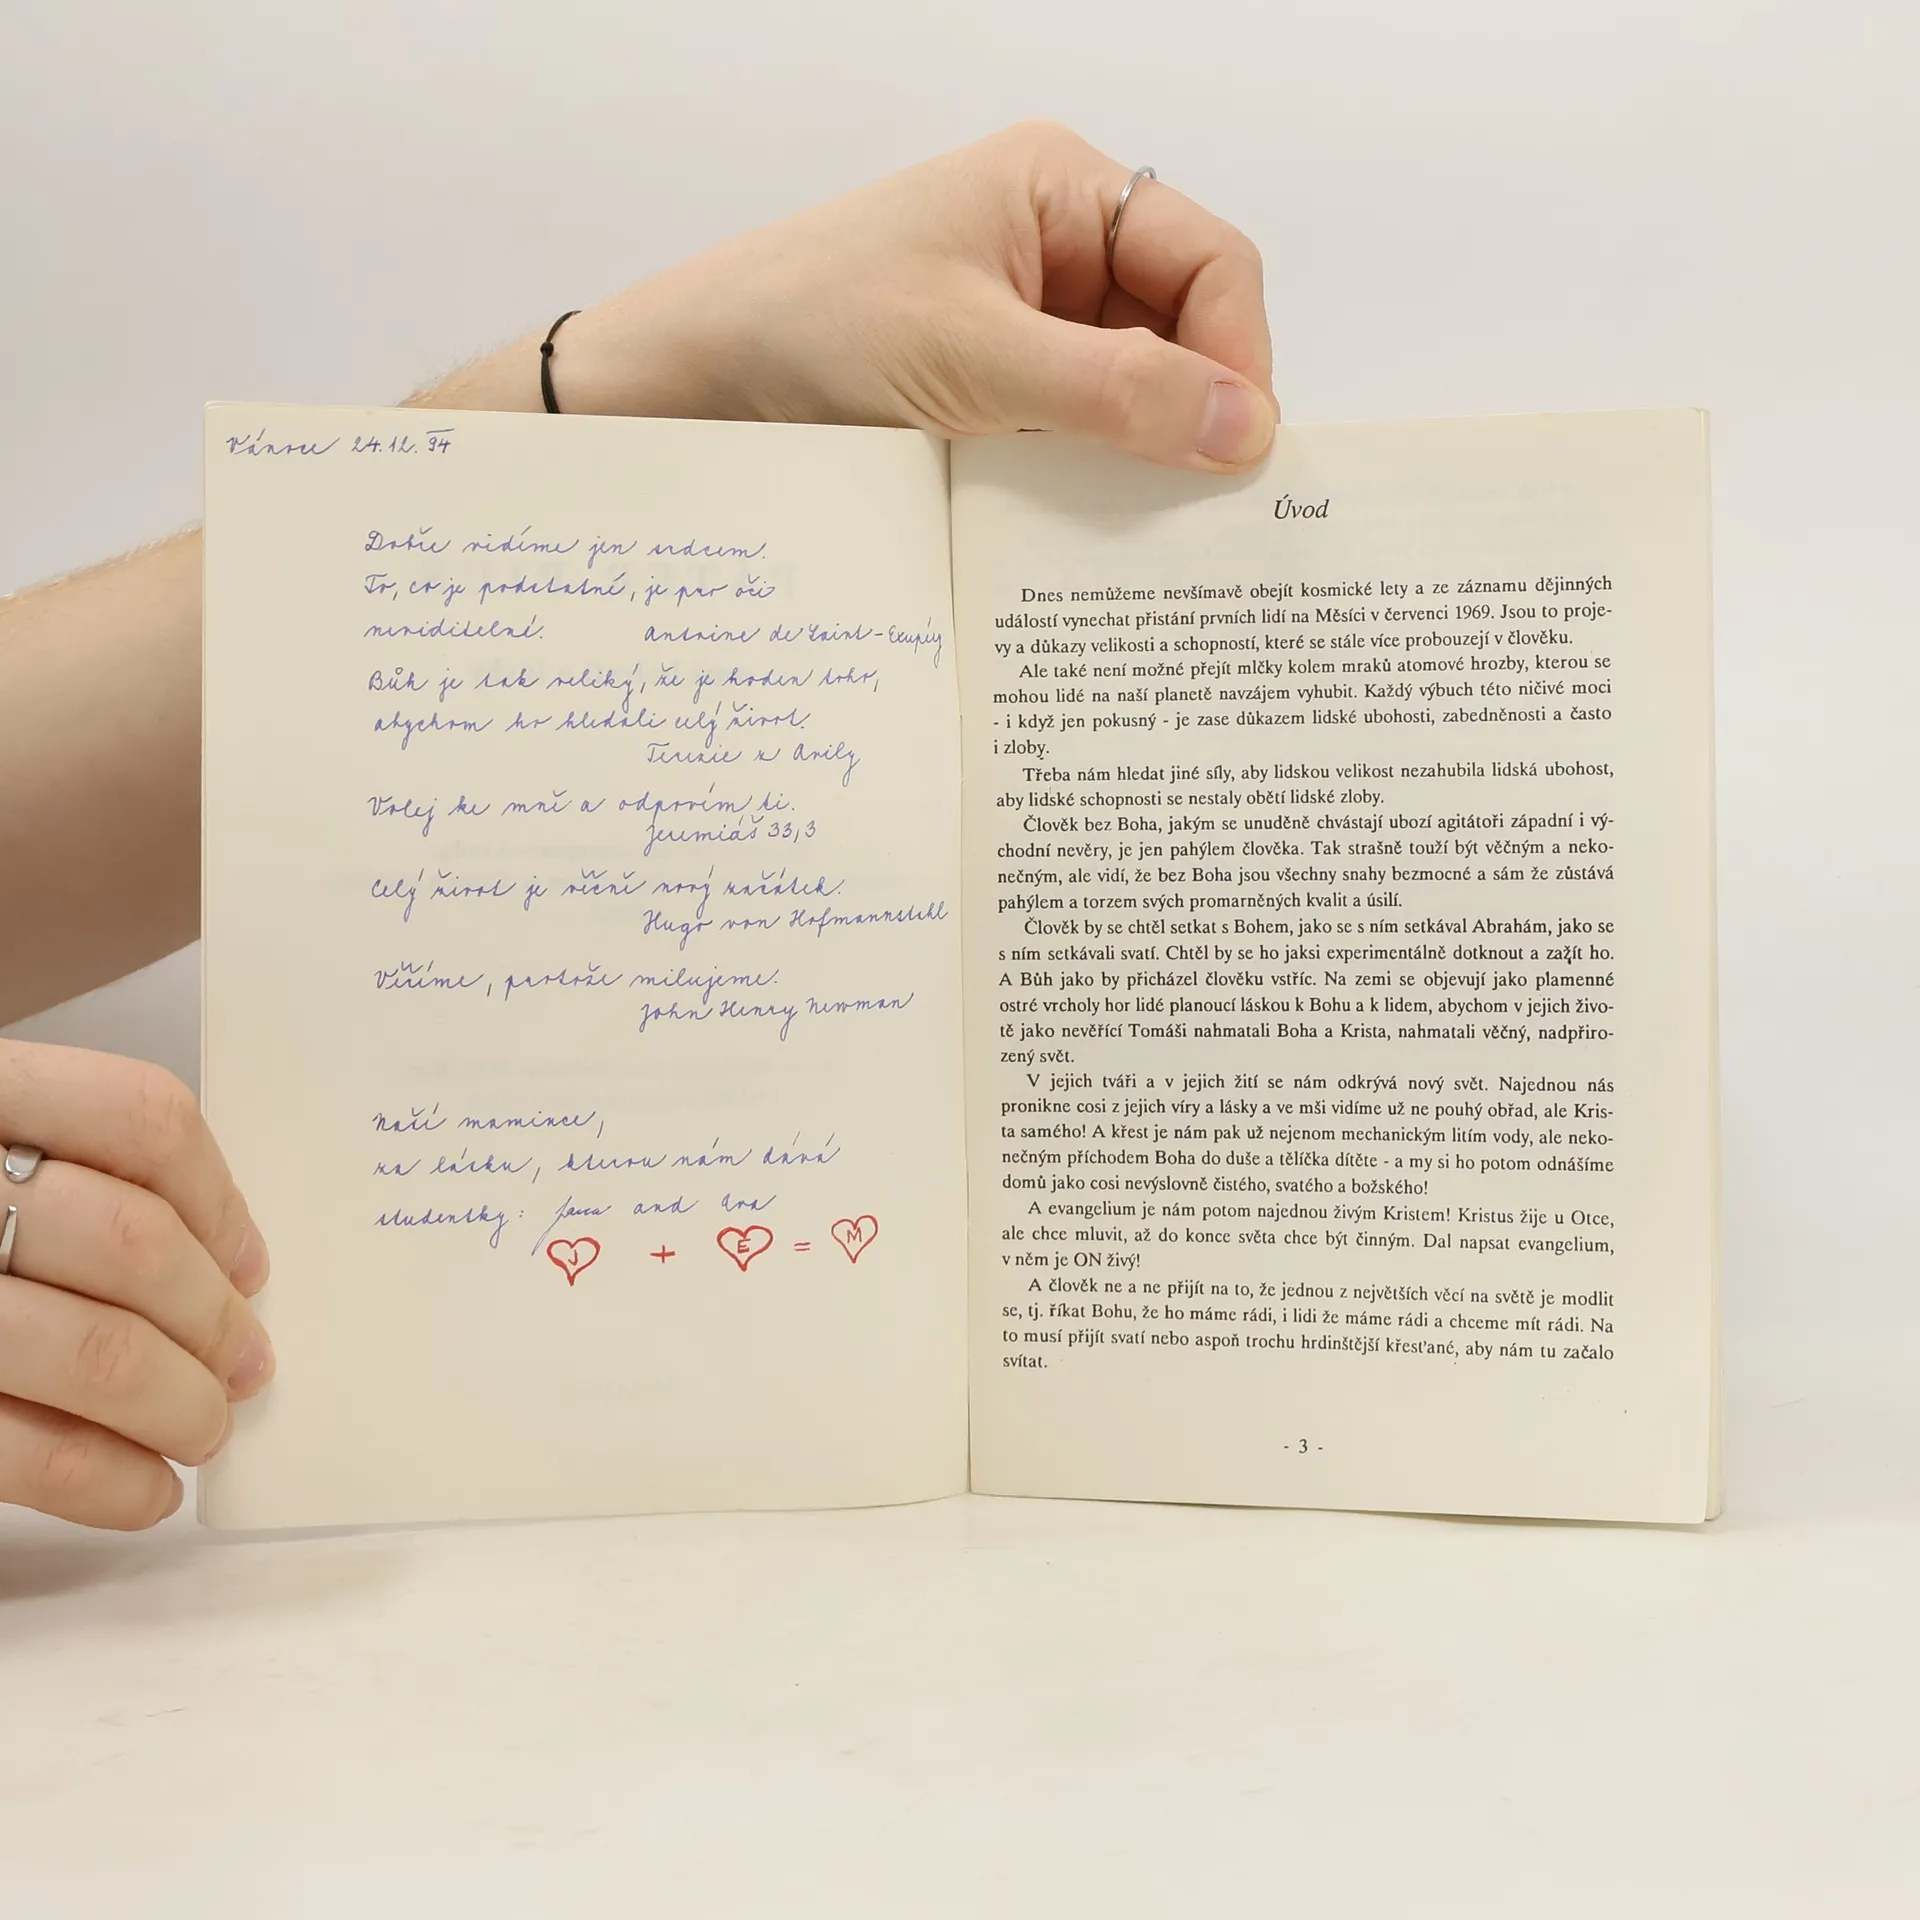 Vánoce 24.12. 94
Dobře vidíme jen srdcem.
To, co je podstatné, je pro oči
neviditelné. Antoine de Saint-Exupéry
Bůh je tak veliký, že je hoden toho,
abychom ho hledali celý život.
Terezie z Avily
Volej ke mně a odpovím ti.
Jeremiáš 33,3
Celý život je věčně nový začátek.
Hugo von Hofmannstahl
Věříme, protože milujeme.
John Henry Newman
Naší mamince,
za lásku, kterou nám dává
studentky: Jana and Eva
J + E = M
Úvod
Dnes nemůžeme nevšímavě obejít kosmické lety a ze záznamu dějinných
událostí vynechat přistání prvních lidí na Měsíci v červenci 1969. Jsou to proje-
vy a důkazy velikosti a schopností, které se stále více probouzejí v člověku.
Ale také není možné přejít mlčky kolem mraků atomové hrozby, kterou se
mohou lidé na naší planetě navzájem vyhubit. Každý výbuch této ničivé moci
- i když jen pokusný - je zase důkazem lidské ubohosti, zabedněnosti a často
i zloby.
Třeba nám hledat jiné síly, aby lidskou velikost nezahubila lidská ubohost,
aby lidské schopnosti se nestaly obětí lidské zloby.
Člověk bez Boha, jakým se unuděně chvástají ubozí agitátoři západní i vý-
chodní nevěry, je jen pahýlem člověka. Tak strašně touží být věčným a neko-
nečným, ale vidí, že bez Boha jsou všechny snahy bezmocné a sám že zůstává
pahýlem a torzem svých promarněných kvalit a úsilí.
Člověk by se chtěl setkat s Bohem, jako se s ním setkával Abrahám, jako se
s ním setkávali svatí. Chtěl by se ho jaksi experimentálně dotknout a zažít ho.
A Bůh jako by přicházel člověku vstříc. Na zemi se objevují jako plamenné
ostré vrcholy hor lidé planoucí láskou k Bohu a k lidem, abychom v jejich živo-
tě jako nevěřící Tomáši nahmatali Boha a Krista, nahmatali věčný, nadpřiro-
zený svět.
V jejich tváři a v jejich žití se nám odkrývá nový svět. Najednou nás
pronikne cosi z jejich víry a lásky a ve mši vidíme už ne pouhý obřad, ale Kris-
ta samého! A křest je nám pak už nejenom mechanickým litím vody, ale neko-
nečným příchodem Boha do duše a tělíčka dítěte - a my si ho potom odnášíme
domů jako cosi nevýslovně čistého, svatého a božského!
A evangelium je nám potom najednou živým Kristem! Kristus žije u Otce,
ale chce mluvit, až do konce světa chce být činným. Dal napsat evangelium,
v něm je ON živý!
A člověk ne a ne přijít na to, že jednou z největších věcí na světě je modlit
se, tj. říkat Bohu, že ho máme rádi, i lidi že máme rádi a chceme mít rádi. Na
to musí přijít svatí nebo aspoň trochu hrdinštější křesťané, aby nám tu začalo
svítat.
- 3 -